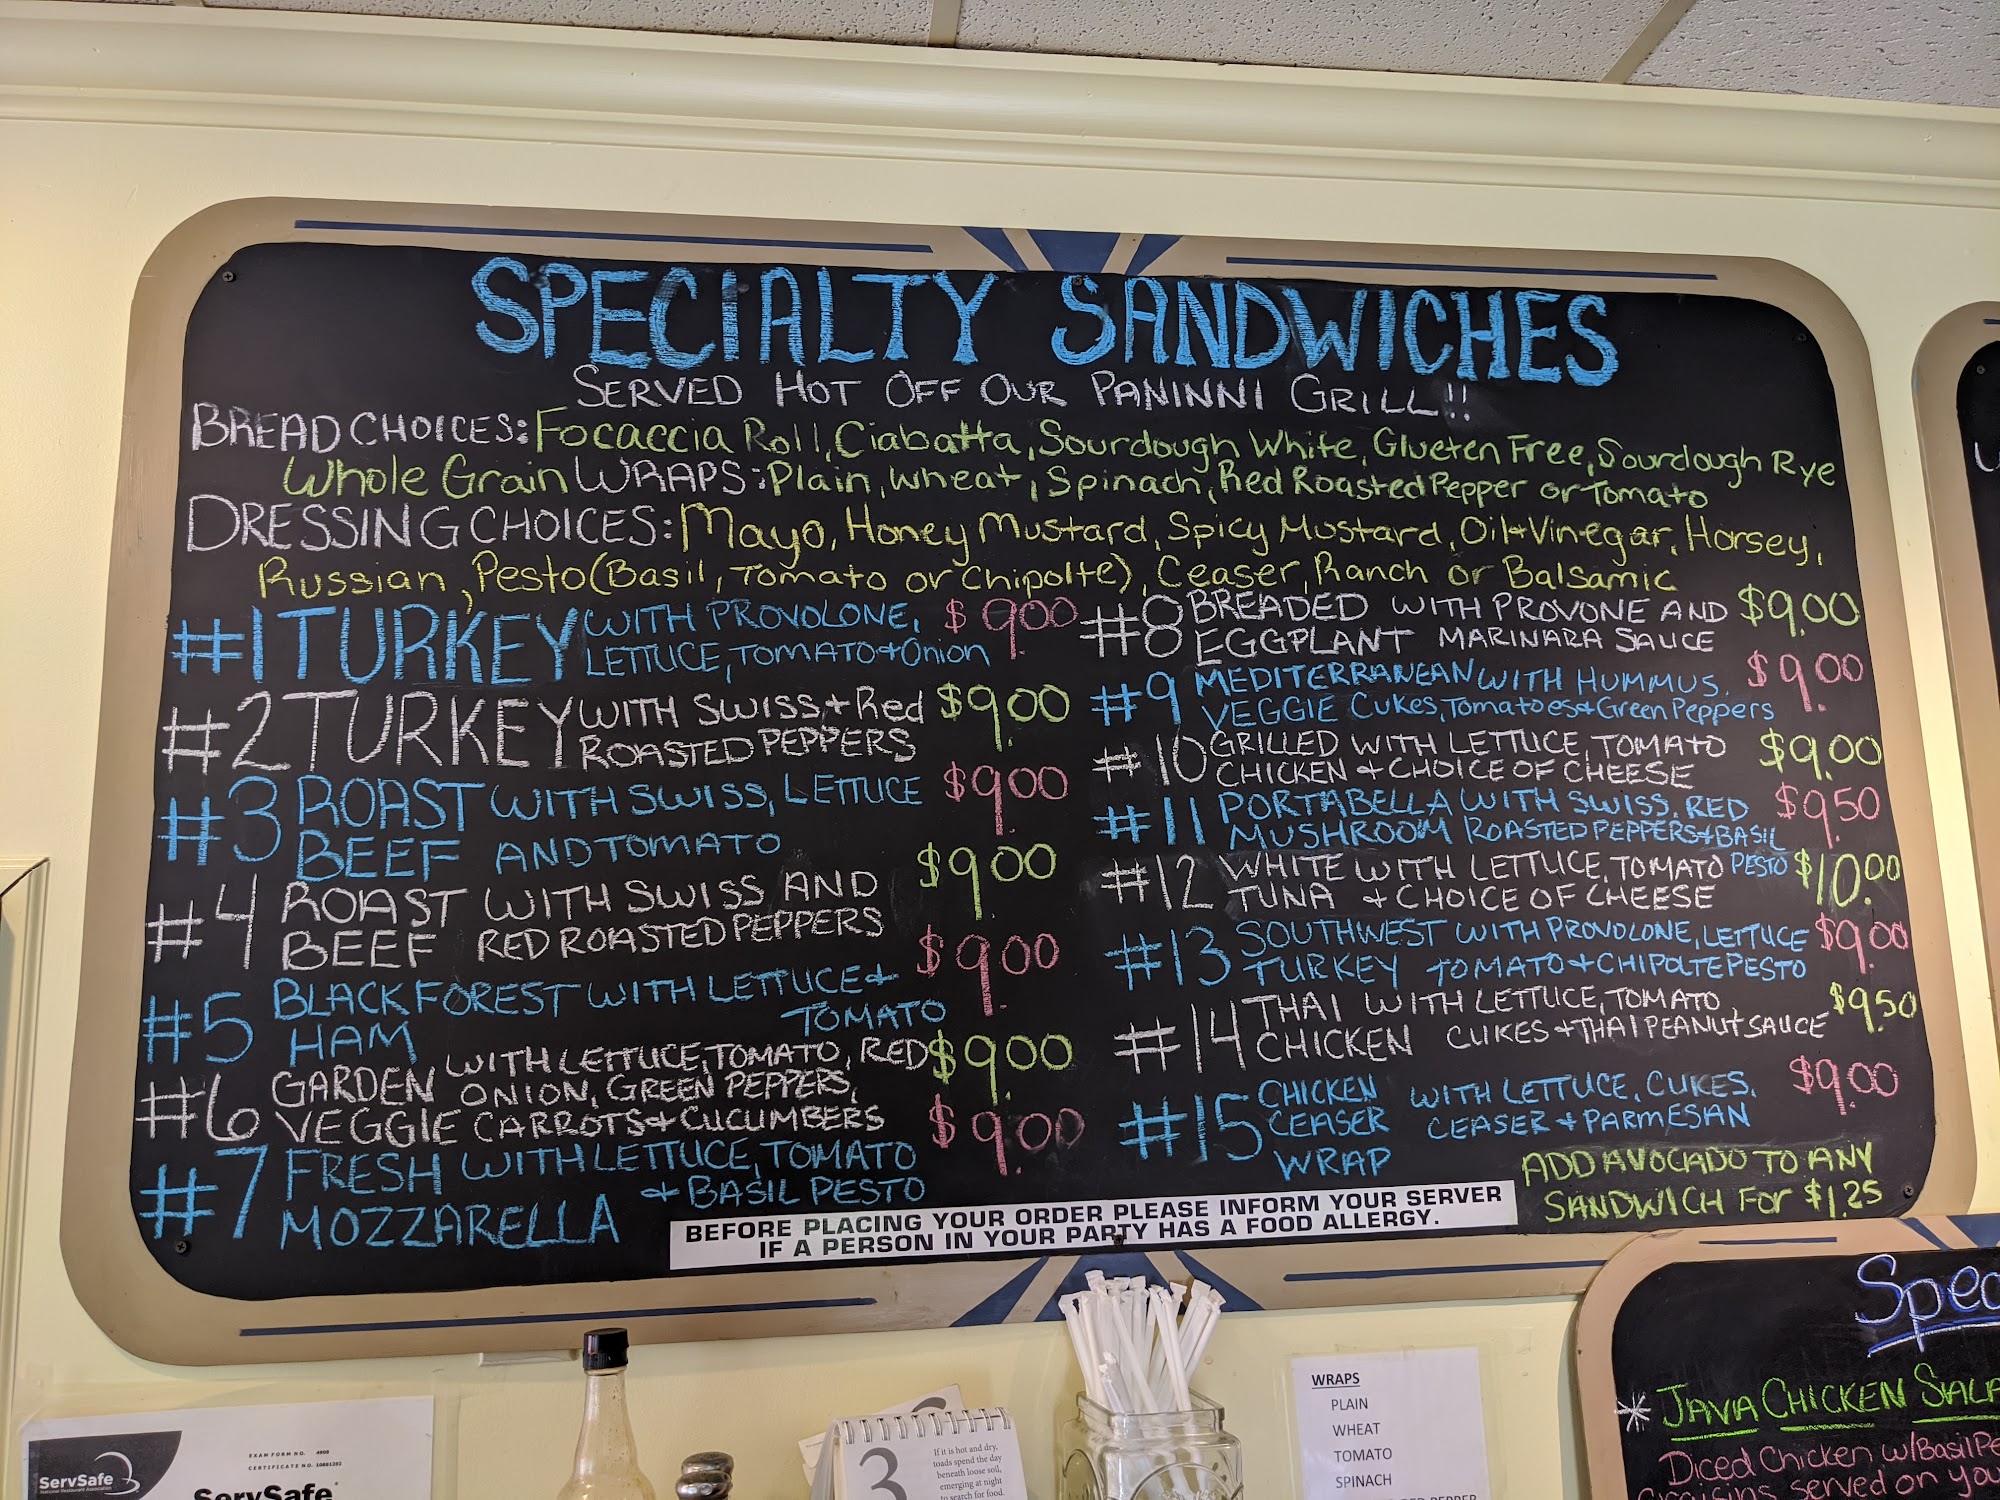 SPECIALTY SANDWICHES
SERVED HOT OFF OUR PANINNI GRILL!!
BREAD CHOICES: Focaccia Roll, Ciabatta, Sourdough White, Glueten Free, Sourdough Rye
Whole Grain WRAPS: Plain, wheat, Spinach, Red Roasted Pepper or Tomato
DRESSING CHOICES: Mayo, Honey Mustard, Spicy Mustard, Oil+Vinegar, Horsey,
Russian, Pesto (Basil, Tomato or Chipolte), Ceaser, Ranch or Balsamic
#1 TURKEY WITH PROVOLONE, $9.00
LETTUCE, TOMATO+Onion
#2 TURKEY WITH SWISS+Red $9.00
ROASTED PEPPERS
#3 ROAST WITH SWISS, LETTUCE $9.00
BEEF AND TOMATO
#4 ROAST WITH SWISS AND $9.00
BEEF RED ROASTED PEPPERS
#5 BLACK FOREST WITH LETTUCE+ $9.00
HAM TOMATO
#6 GARDEN WITH LETTUCE, TOMATO, RED $9.00
ONION, GREEN PEPPERS,
VEGGIE CARROTS+CUCUMBERS
#7 FRESH WITH LETTUCE, TOMATO $9.00
MOZZARELLA + BASIL PESTO
#8 BREADED WITH PROVONE AND $9.00
EGGPLANT MARINARA SAUCE
#9 MEDITERRANEAN WITH HUMMUS, $9.00
VEGGIE Cukes, Tomatoes+Green Peppers
#10 GRILLED WITH LETTUCE, TOMATO $9.00
CHICKEN + CHOICE OF CHEESE
#11 PORTABELLA WITH SWISS, RED $9.50
MUSHROOM ROASTED PEPPERS+BASIL
PESTO
#12 WHITE WITH LETTUCE, TOMATO $10.00
TUNA + CHOICE OF CHEESE
#13 SOUTHWEST WITH PROVOLONE, LETTUCE $9.00
TURKEY TOMATO+CHIPOLTE PESTO
#14 THAI WITH LETTUCE, TOMATO, $9.50
CHICKEN CUKES+THAI PEANUT SAUCE
#15 CHICKEN WITH LETTUCE, CUKES, $9.00
CEASER CEASER+PARMESAN
WRAP
ADD AVOCADO TO ANY
SANDWICH FOR $1.25
BEFORE PLACING YOUR ORDER PLEASE INFORM YOUR SERVER
IF A PERSON IN YOUR PARTY HAS A FOOD ALLERGY.
ServSafe
National Restaurant Association
EXAM FORM NO. 4808
CERTIFICATE NO. 10881202
ServSafe
3
If it is hot and dry,
toads spend the day
beneath loose soil,
emerging at night
to search for food.
WRAPS
PLAIN
WHEAT
TOMATO
SPINACH
PEPPER
Spec
* JAVA CHICKEN SALA
Diced Chicken w/Basil Pe
served on you